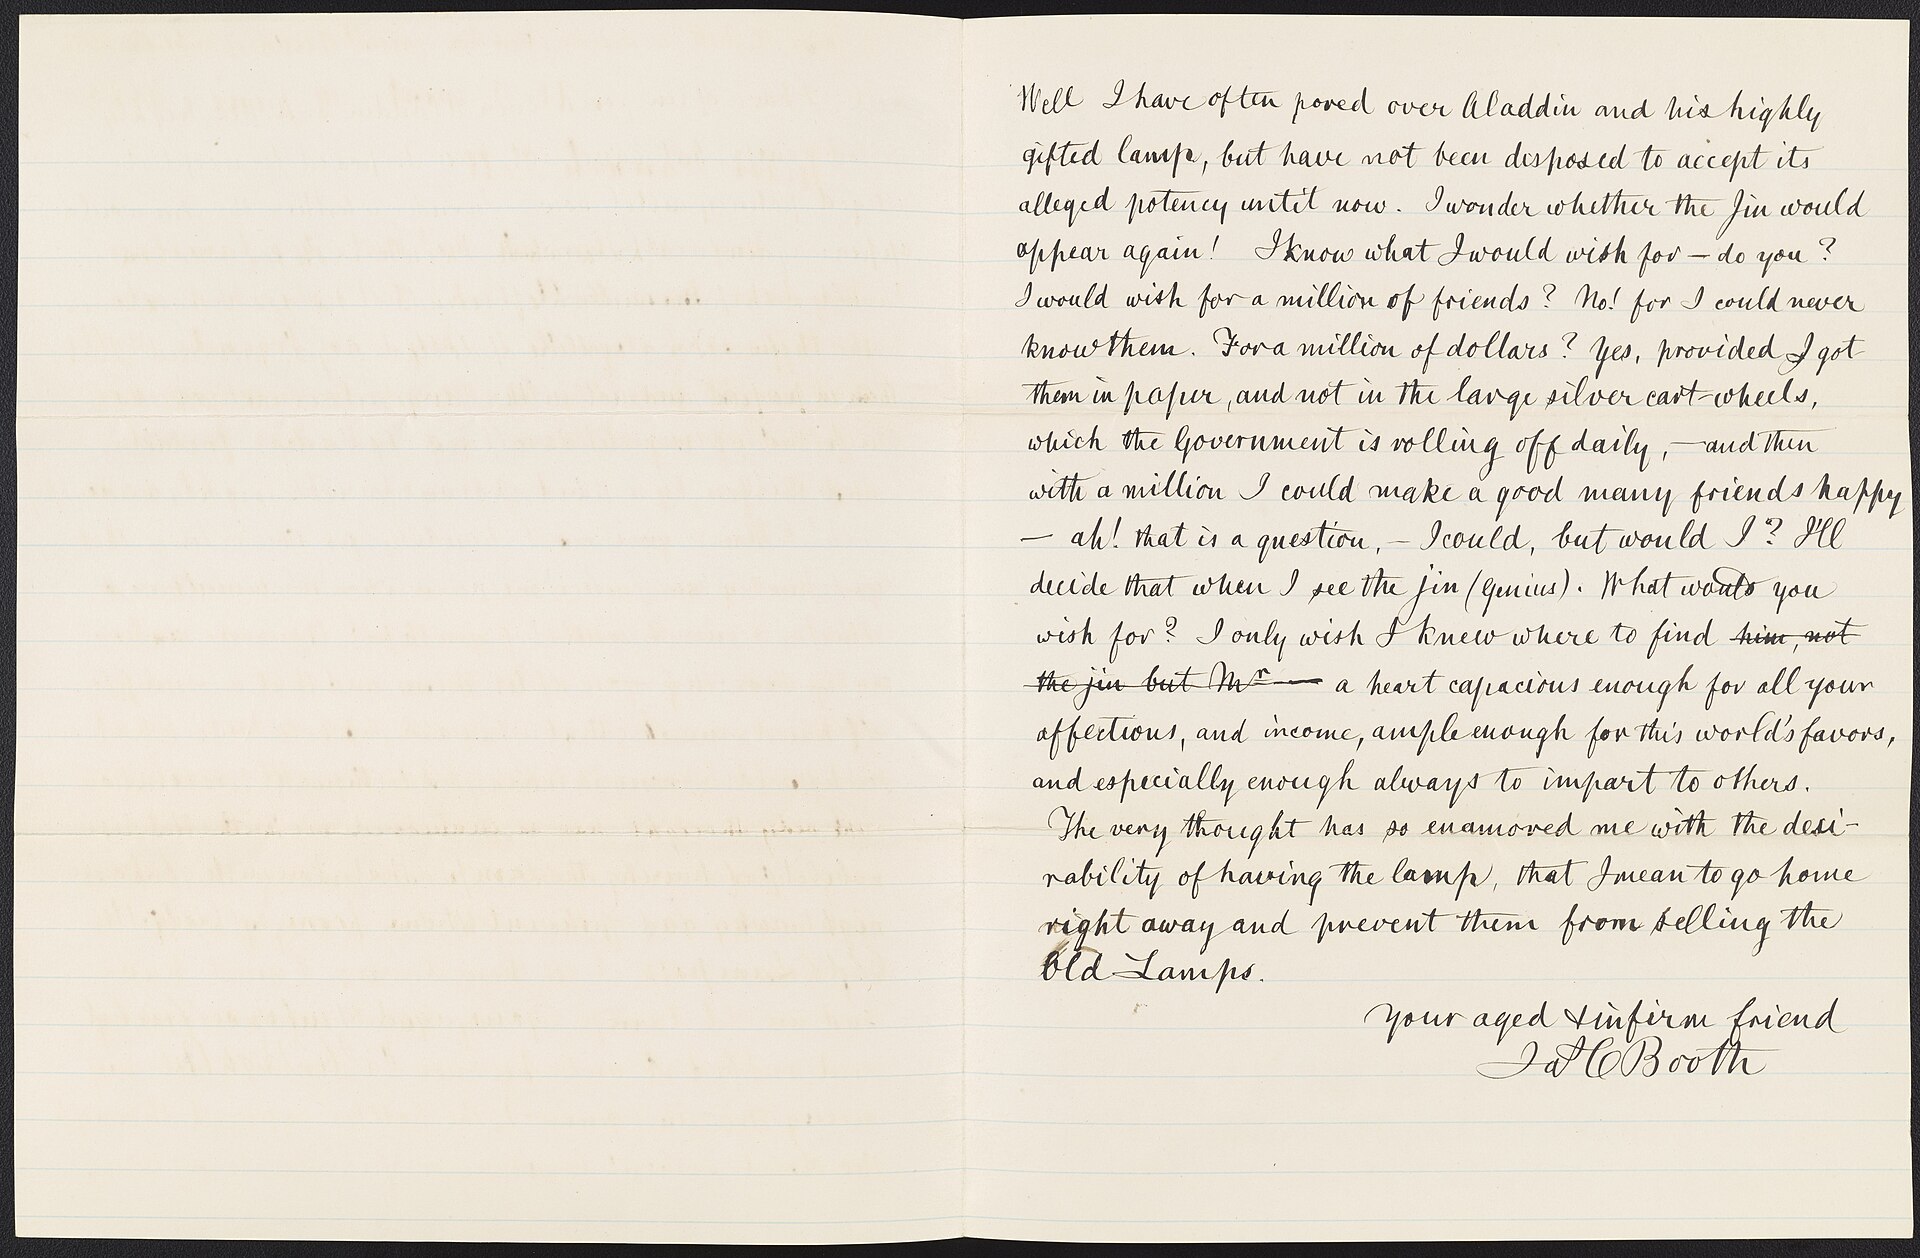 Well I have often pored over Aladdin and his highly
gifted lamp, but have not been disposed to accept its
alleged potency until now. I wonder whether the Jin would
appear again! I know what I would wish for — do you?
I would wish for a million of friends? No! for I could never
know them. For a million of dollars? Yes, provided I got
them in paper, and not in the large silver cart-wheels,
which the Government is rolling off daily, — and then
with a million I could make a good many friends happy
— ah! that is a question, — I could, but would I? I'll
decide that when I see the jin (genius). What would you
wish for? I only wish I knew where to find him, not
the jin but Mr — a heart capacious enough for all your
affections, and income, ample enough for this world's favors,
and especially enough always to impart to others.
The very thought has so enamored me with the desi-
rability of having the lamp, that I mean to go home
right away and prevent them from selling the
Old Lamps.
Your aged & infirm friend
Booth